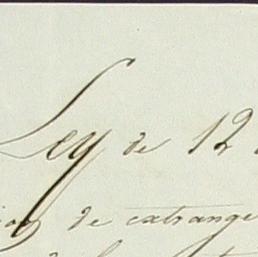 Ley de 12
de extrange